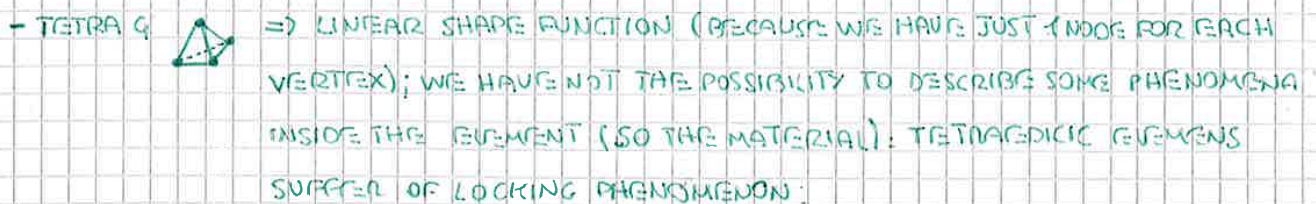 - TETRA 4 => LINEAR SHAPE FUNCTION (BECAUSE WE HAVE JUST 1 NODE FOR EACH
VERTEX); WE HAVE NOT THE POSSIBILITY TO DESCRIBE SOME PHENOMENA
INSIDE THE ELEMENT (SO THE MATERIAL): TETRAEDICIC ELEMENS
SUFFER OF LOCKING PHENOMENON: